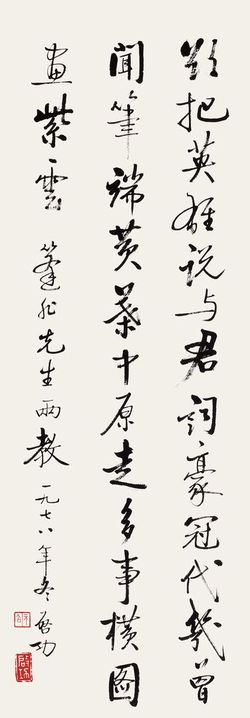 欲把英雄说与君词豪冠代幾曾
闻笔端黄葉中原走多事横图
画紫雲 篷舟先生两教 一九七八年冬 启功